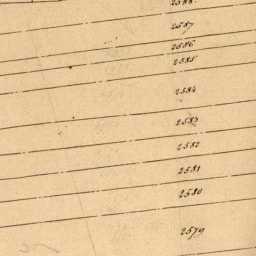 2588
2587
2586
2585
2584
2583
2582
2581
2580
2579